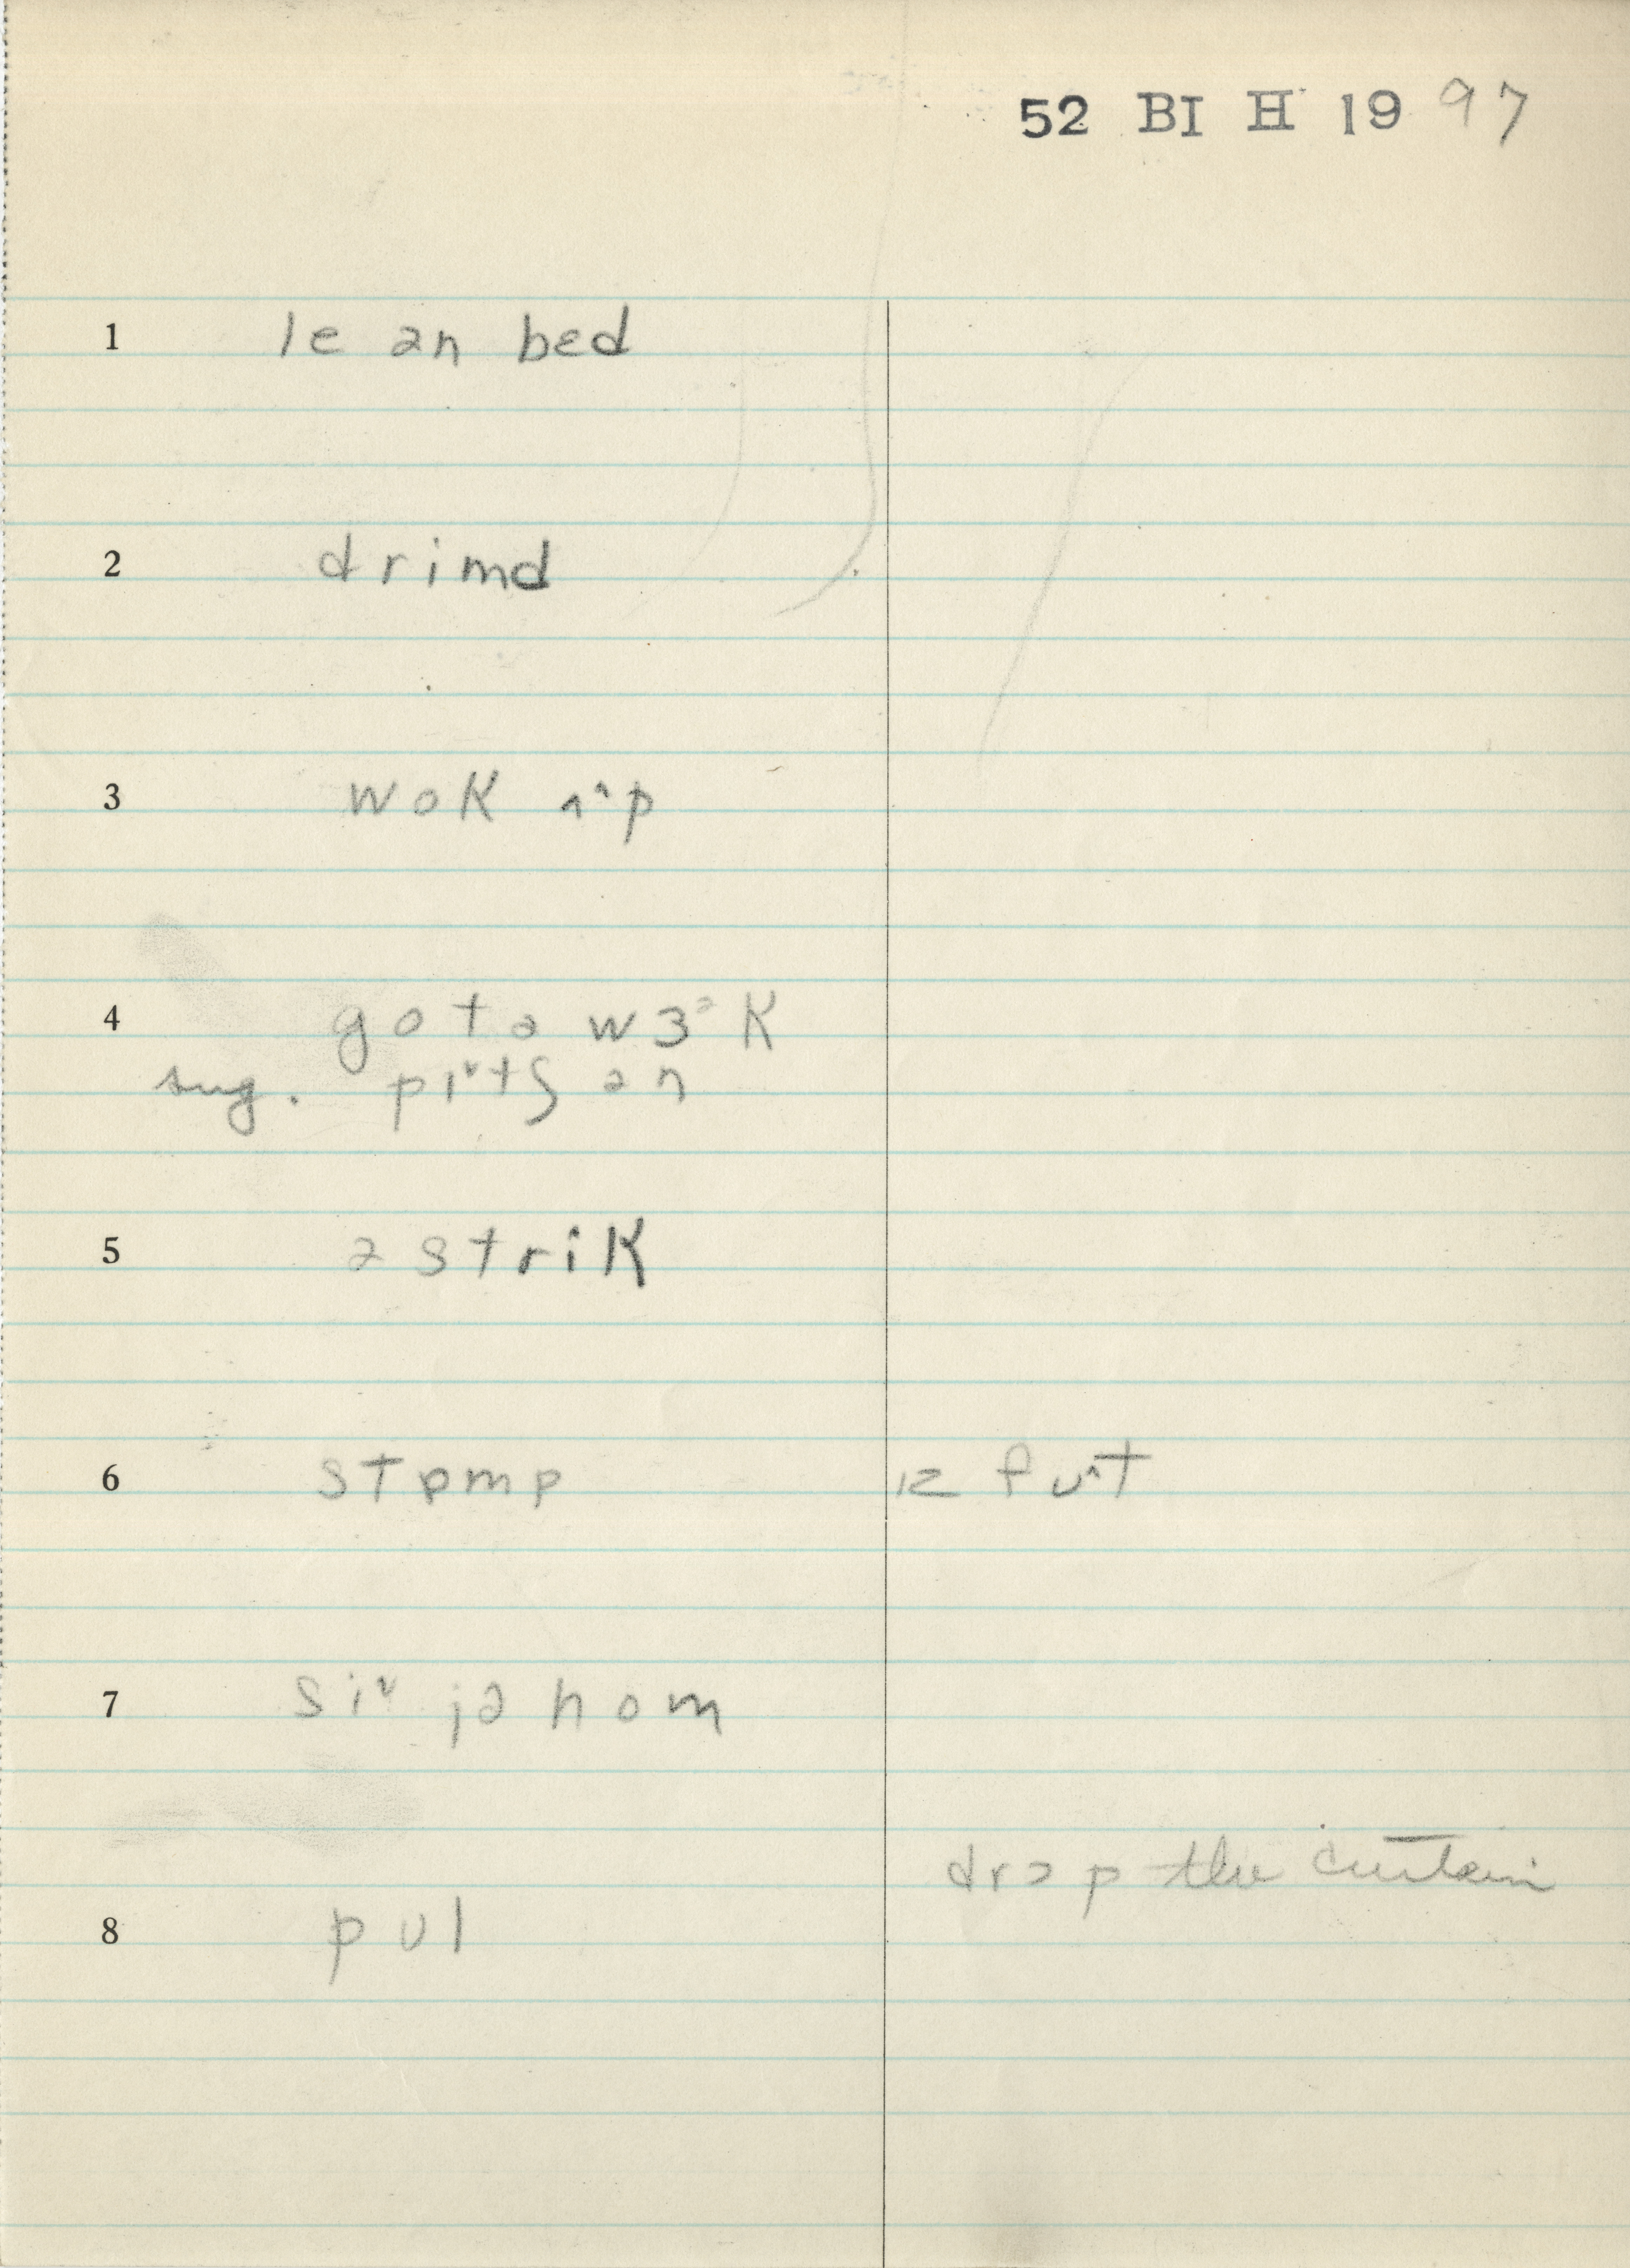 52 BI H 19 97
1 le ən bed
2 drimd
3 wok ʌ^p
4 go tə wɜᵊk
sug. pɪᵛtʃ ən
5 ə strik
6 stɒmp ɪz fʊ^t
7 siᵛ jə hom
drɔp the curtain
8 pʊl